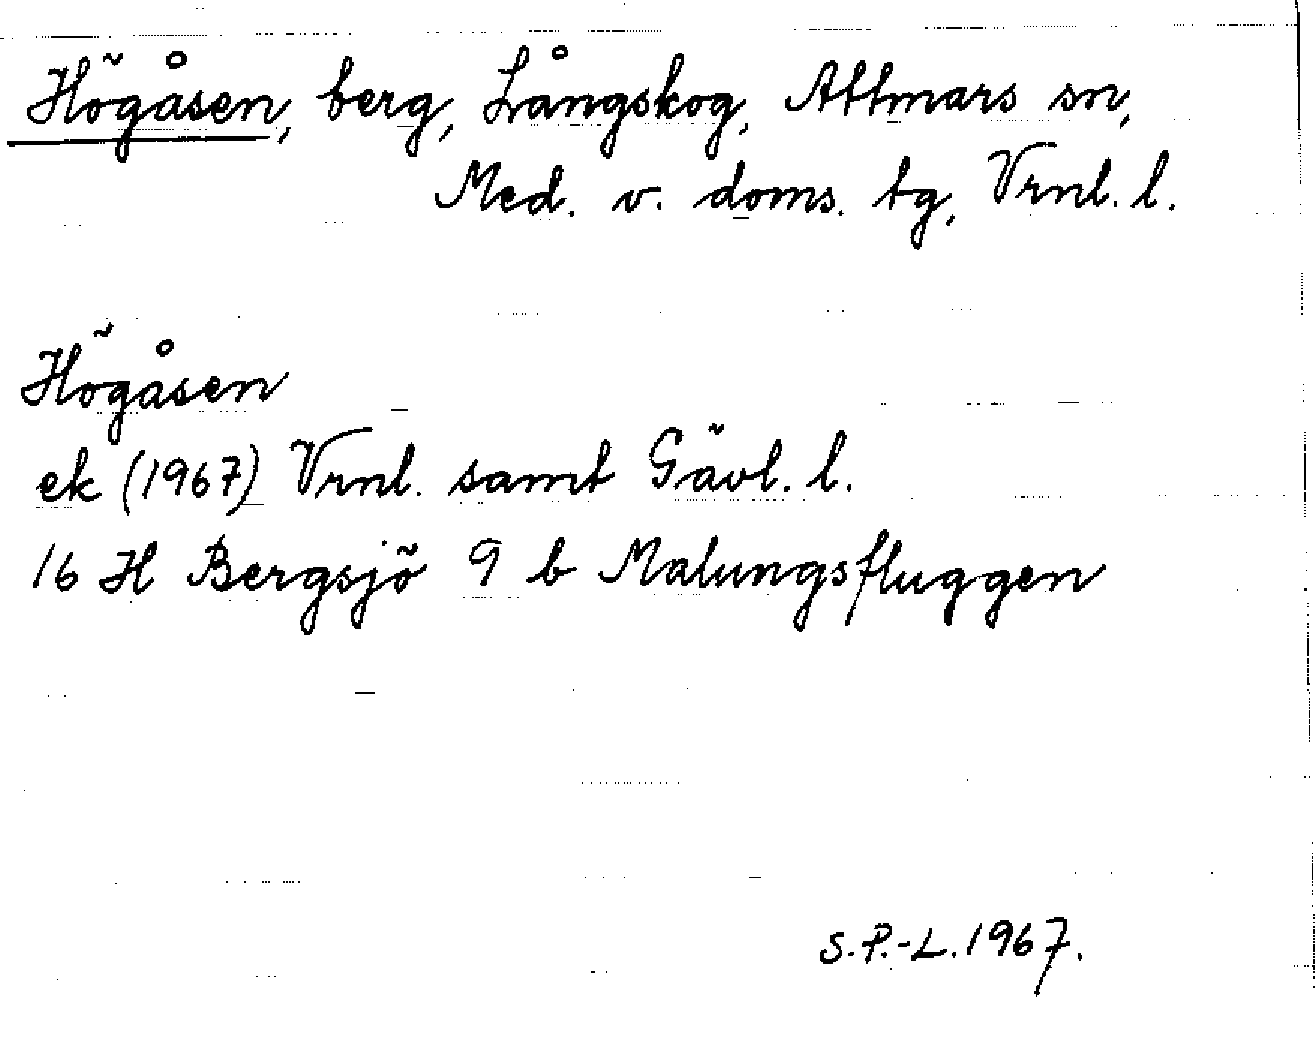 Högåsen, berg, Långskog, Attmars sn,
Med. v. doms. tg, Vrnl. l.
Högåsen
ek (1967) Vrnl. samt Gävl. l.
16 H Bergsjö 9 b Malungsfluggen
S.P.-L. 1967.